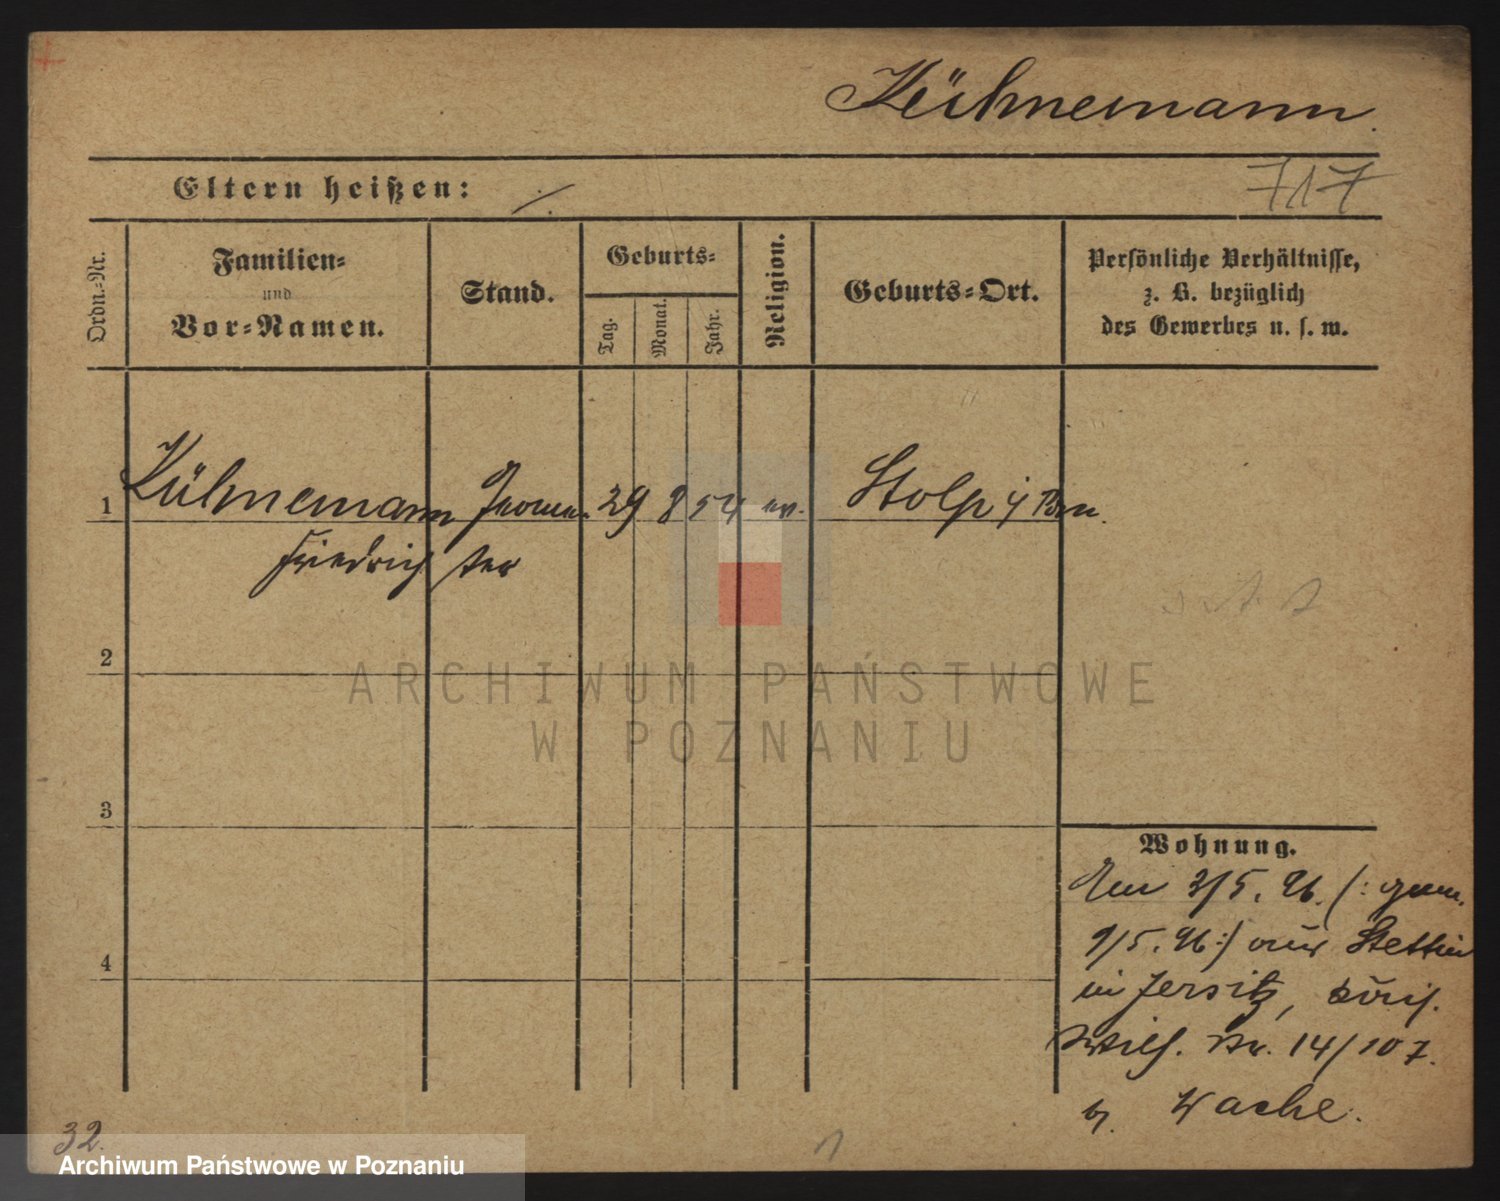 Kühnemann.
Eltern heißen: ./.
717
Ordn.-Nr.
Familien-
und
Vor-Namen.
Stand.
Geburts-
Tag.
Monat.
Jahr.
Religion.
Geburts-Ort.
Persönliche Verhältnisse,
z. B. bezüglich
des Gewerbes u. s. w.
1 Kühnemann 29 8 54 ev. Stolp i/ Pom.
Friedrich
2
3
4
Wohnung.
/5. 96. (:
9/5. 96:) aus Stettin
in Jersitz,
Wilh. Str. 14/107.
b. Wache.
32.
1
ARCHIWUM PAŃSTWOWE
W POZNANIU
Archiwum Państwowe w Poznaniu